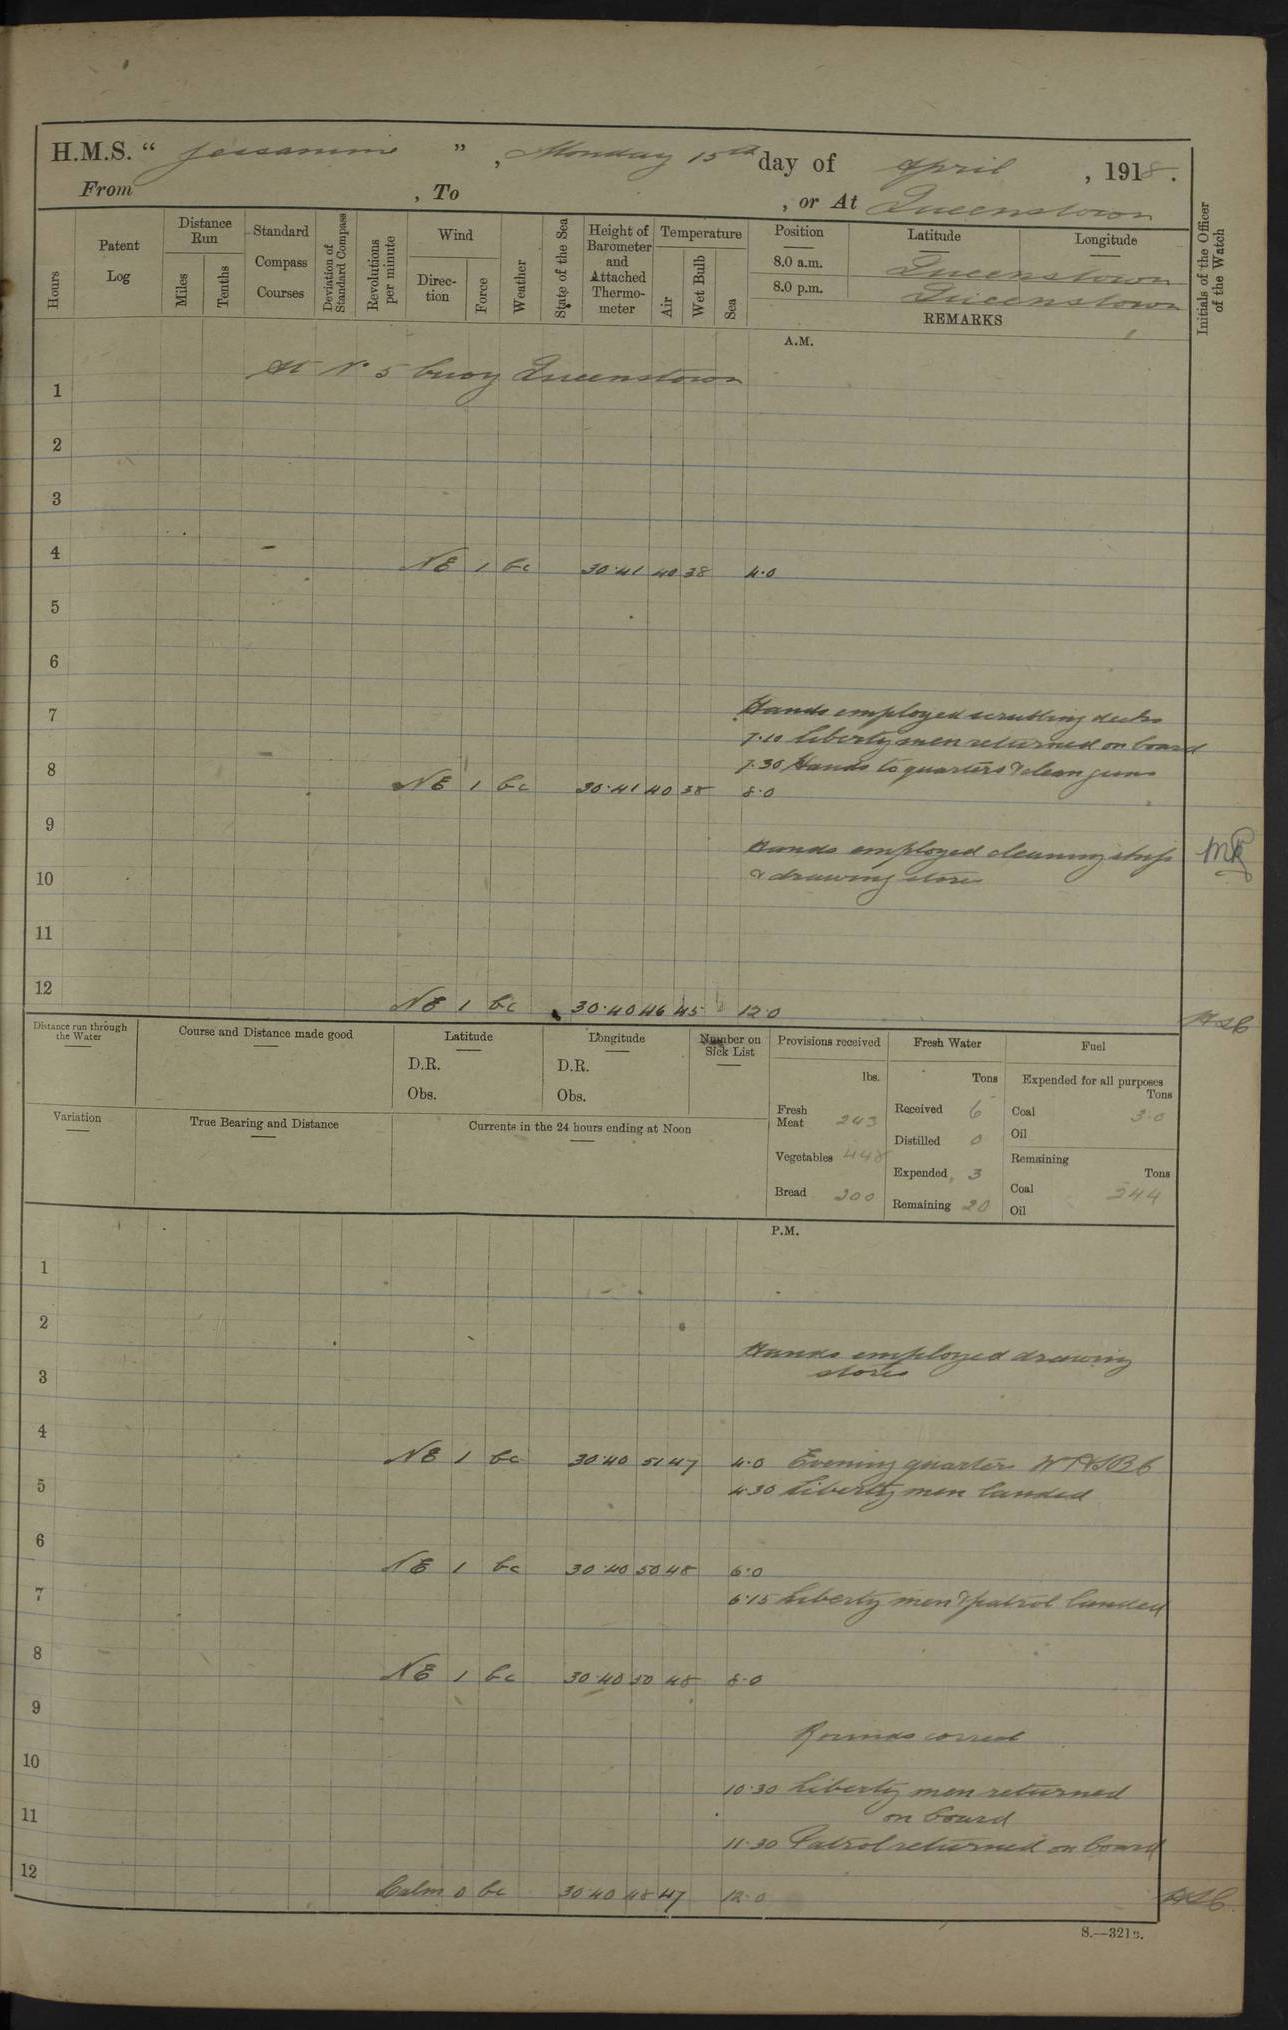 H.M.S. “ Jessamine ” , Monday 15th day of April , 1918.
From , To , or At Queenstown
Hours
Patent Log
Distance Run
Miles
Tenths
Standard Compass Courses
Deviation of Standard Compass
Revolutions per minute
Wind
Direction
Force
Weather
State of the Sea
Height of Barometer and Attached Thermometer
Temperature
Air
Wet Bulb
Sea
Position
Latitude
Longitude
8.0 a.m. Queenstown
8.0 p.m. Queenstown
REMARKS
Initials of the Officer of the Watch
A.M.
At No 5 buoy Queenstown
1
2
3
4
NE 1 bc 30.41 40 38 4.0
5
6
7
Hands employed scrubbing decks
7.10 Liberty men returned on board
7.30 Hands to quarters & clean guns
8
NE 1 bc 30.41 40 38 8.0
9
Hands employed cleaning ship
& drawing stores
10
11
12
NE 1 bc 30.40 46 45 12.0
Distance run through the Water
Course and Distance made good
Latitude
D.R.
Obs.
Longitude
D.R.
Obs.
Number on Sick List
Provisions received
lbs.
Fresh Meat 243
Vegetables 448
Bread 200
Fresh Water
Tons
Received 6
Distilled 0
Expended 3
Remaining 20
Fuel
Expended for all purposes
Tons
Coal 3.0
Oil
Remaining
Tons
Coal 244
Oil
Variation
True Bearing and Distance
Currents in the 24 hours ending at Noon
P.M.
1
2
Hands employed drawing
stores
3
4
NE 1 bc 30.40 51 47 4.0 Evening quarters
4.30 Liberty men landed
5
6
NE 1 bc 30.40 50 48 6.0
6.15 Liberty men & patrol landed
7
8
NE 1 bc 30.40 50 48 8.0
9
Rounds correct
10
10.30 Liberty men returned
on board
11
11.30 Patrol returned on board
12
Calm 0 bc 30.40 48 47 12.0
S.—321B.